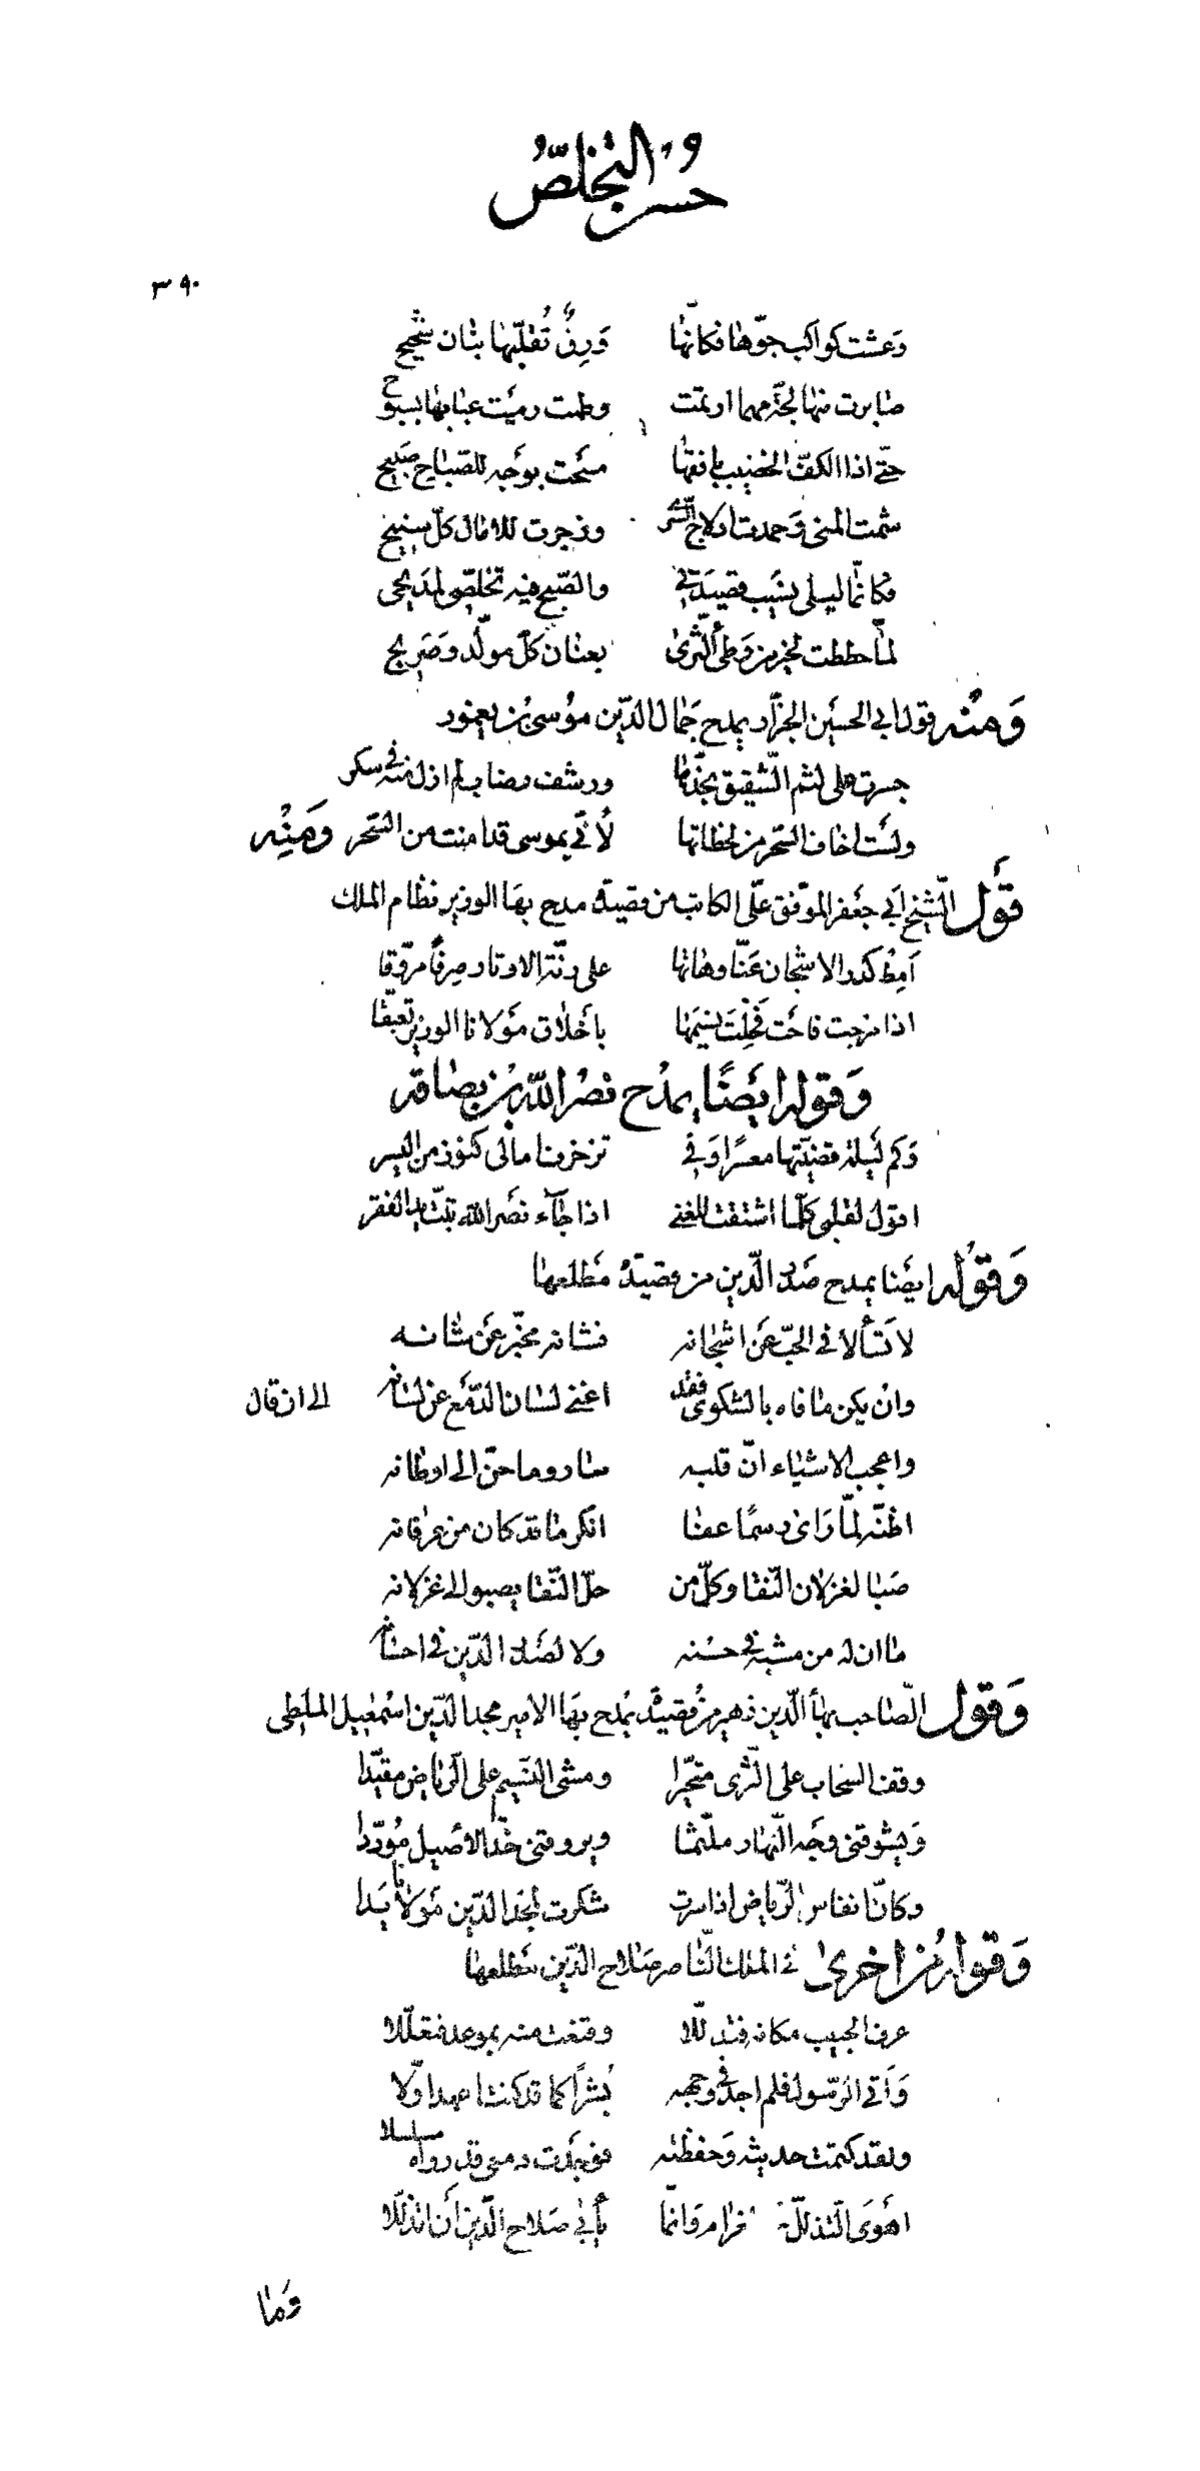 حسن التخلص
٣٩٠
وعشت كواكب جوّها فكانّها ورق تُقلّبها بنان شحيح
صابرت منها لجّة مهما ارتمت وطمت رميت عبابها بسبوح
حتّى اذا الكفّ الخضيب بافقها مسحت بوجه للصّباح صبيح
شمت المنى وحمدت ادلاج السّرى وزجرت للامال كلّ سنيح
فكانّما ليلى نسيب قصيدتي والصّبح فيه تخلّصى لمديحى
لمّا حططت لخير من وطئ الثّرى بعنان كلّ مولّد وصريح
ومنه قول ابي الحسين الجزّار يمدح جمال الدّين موسى بن يغمور
جسرت على لثم الشّقيق بخدّها ورشف رضاب لم ازل منه فى سكر
ولست اخاف السّحر من لحظاتها لأنّي بموسى قد امنت من السّحر ومنه
قول الشّيخ ابي جعفر الموفّق علّى الكاتب من قصيدة مدح بها الوزير نظام الملك
امط كدر الاشجان عنّا وهاتها على رنّة الاوتار صرفًا مروّقا
اذا مزجت فاحت فخلت نسيمها باخلاق مولانا الوزير تعبّقا
وقوله ايضًا يمدح نصر اللّه بن بصاقه
وكم ليلة قضيّتها معسرًا وفي تزخرف امالى كنوز من اليسر
اقول لقلبى كلّما اشتقت للغنى اذا جآء نصر اللّه تبّت يد الفقر
وقوله ايضًا يمدح صدر الدّين من قصيدة مطلعها
لا تسألا فى الحبّ عن اشجانه فشانه مخبّر عن شانه
وان يكن ما فاه بالشكوى فقد اغنى لسان الدّمع عن لسانه الى ان قال
واعجب الاشياء انّ قلبه سار وما حنّ الى اوطانه
اظنّه لمّا راى رسمًا عفا انكر ما قد كان من عرفانه
صبا لغزلان النّقا وكلّ من حلّ النّقا يصبو الى غزلانه
ما ان له من مشبه فى حسنه ولا لصدر الدّين فى احسانه
وقول الصّاحب بهاء الدّين زهير من قصيدة يمدح بها الامير مجد الدّين اسمعيل الملطى
وقف السحاب على الثّرى متحيّرا ومشى النّسيم على الرّياض مقيّدا
ويشوقنى وجه النّهار ملثّما ويروقنى خدّ الاصيل مورّدا
وكانّ انفاس الرّياض اذا سرت شكرت لمجد الدّين مولانا يدا
وقوله من اخرى فى الملك النّاصر صلاح الدّين مطلعها
عرف الحبيب مكانه فتدلّلا وقنعت منه بموعد فتعلّلا
واتى الرّسول فلم اجد فى وجهه بشرًا كما قد كنت اعهد اوّلا
ولقد كتمت حديثه وحفظته فوجدت دمعى قد رواه مسلسلا
اهوى التّذلّل فى الغرام وانّما يأبى صلاح الدّين أن اتذلّلا
وما